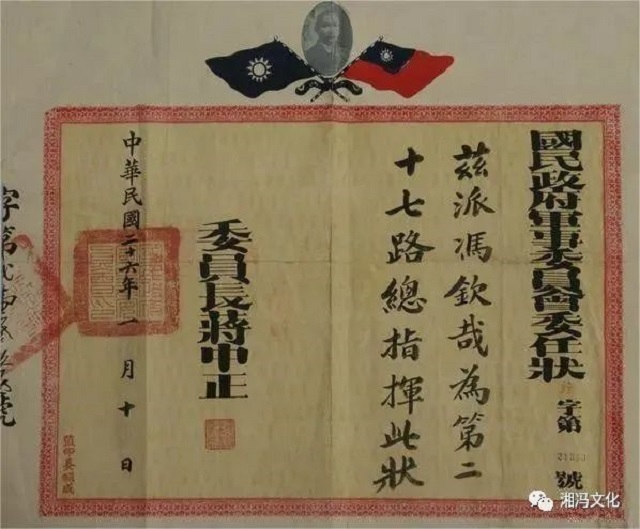 國民政府軍事委員會委任狀
字第
號
茲派馮欽哉為第二
十七路總指揮此狀
委員長蔣中正
中華民國二十六年一月十日
監印
字第
號
湘冯文化